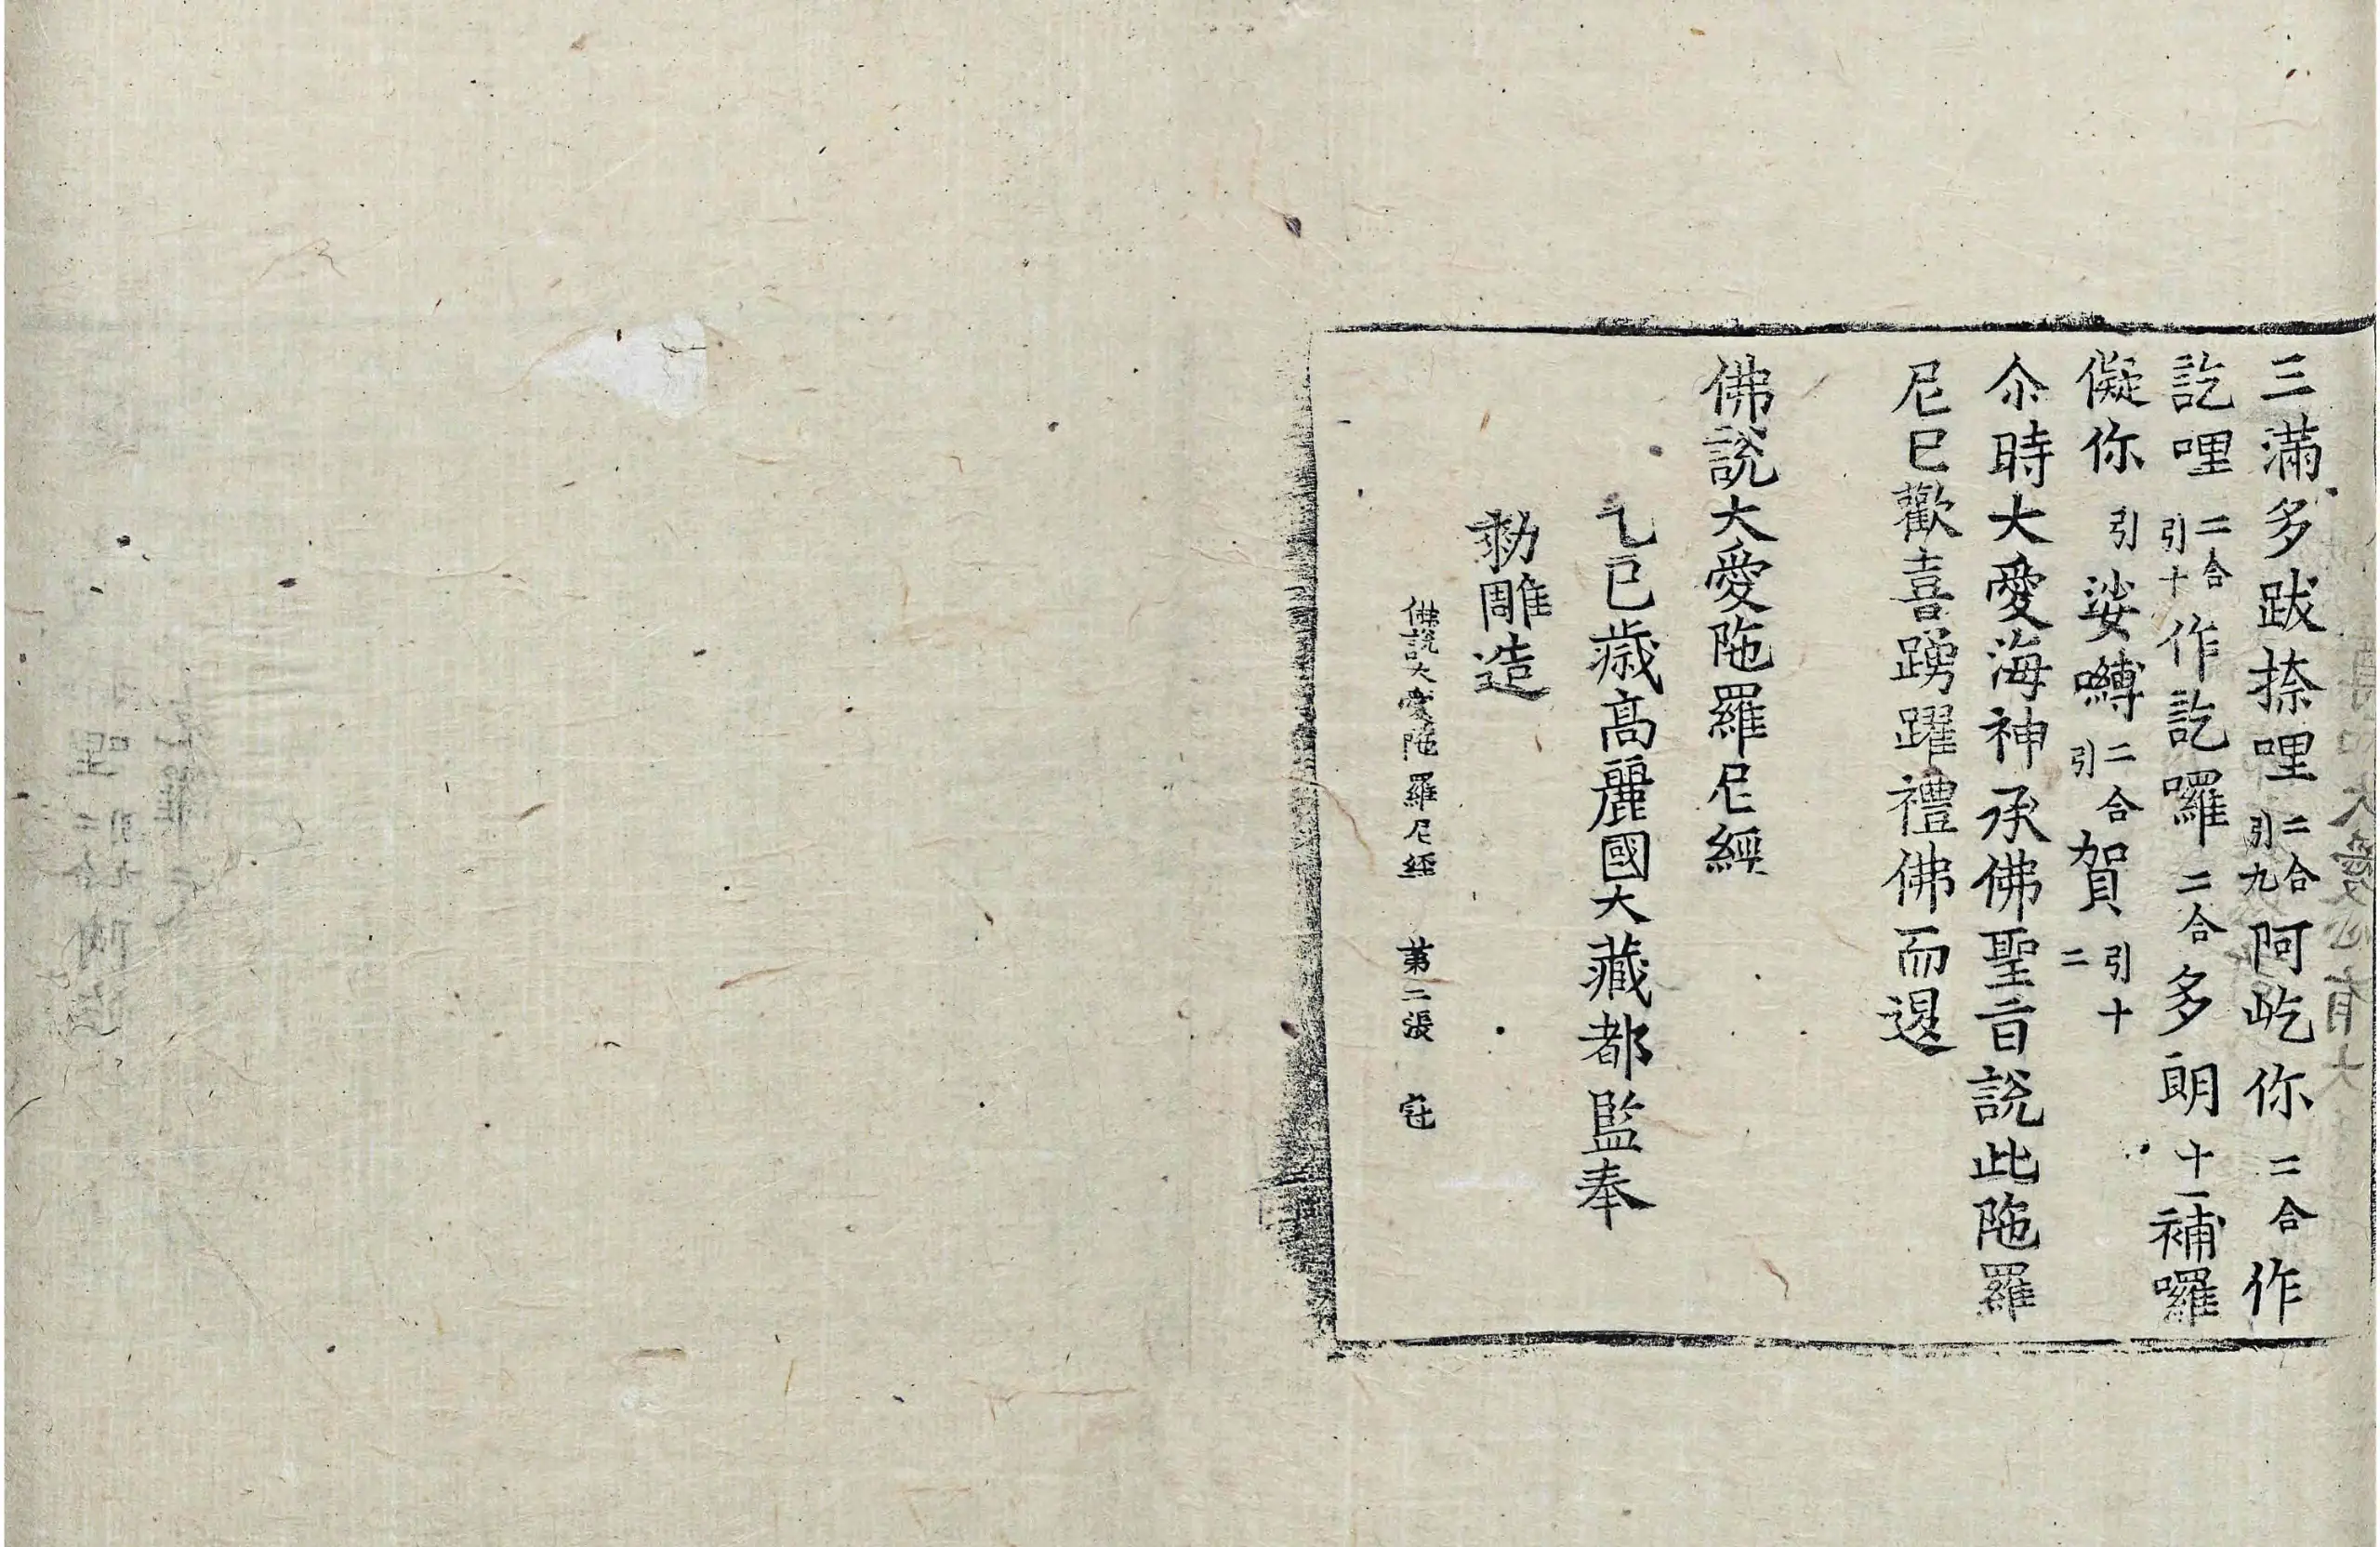 三滿多跋捺哩二合引九阿屹你二合作
訖哩二合引十作訖囉二合多朗十一補囉
儗你引娑嚩二合引賀引十二
尒時大愛海神承佛聖旨說此陁羅
尼已歡喜踴躍禮佛而退
佛說大愛陁羅尼經
乙巳歲高麗國大藏都監奉
勑雕造
佛說大愛陁羅尼經 第二張 㝡